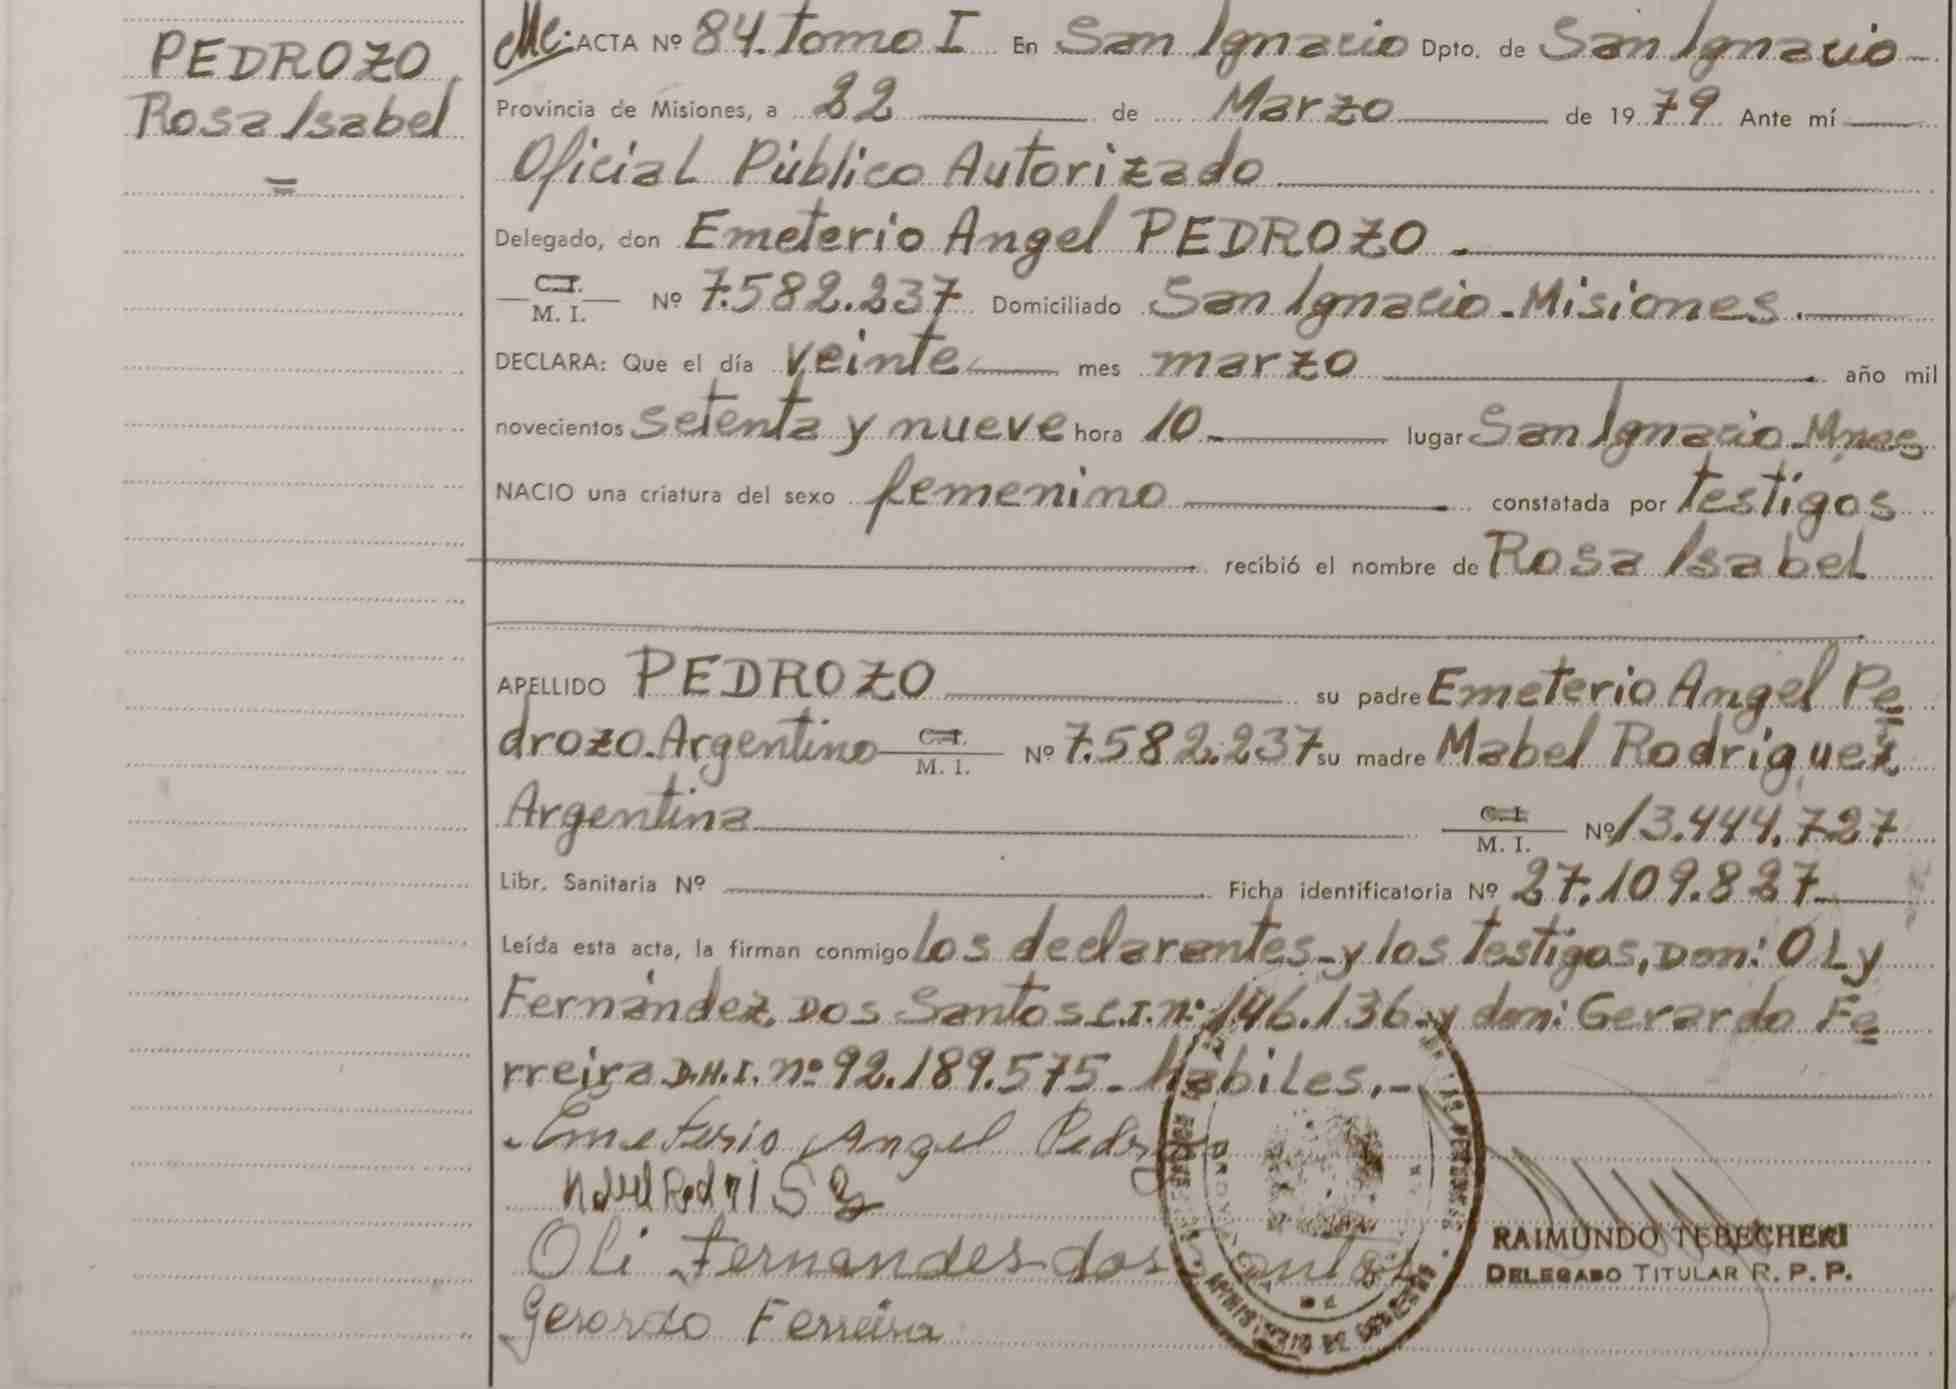 PEDROZO
Rosa Isabel
=
ACTA Nº 84. Tomo I En San Ignacio Dpto. de San Ignacio
Provincia de Misiones, a 22 de Marzo de 1979 Ante mí
Oficial Público Autorizado
Delegado, don Emeterio Angel PEDROZO.
C.I.
M. I. Nº 7.582.237 Domiciliado San Ignacio - Misiones.
DECLARA: Que el día veinte mes marzo año mil
novecientos setenta y nueve hora 10 lugar San Ignacio - Mnes
NACIO una criatura del sexo femenino constatada por testigos
recibió el nombre de Rosa Isabel
APELLIDO PEDROZO su padre Emeterio Angel Pe
drozo. Argentino C.I. M. I. Nº 7.582.237 su madre Mabel Rodriguez
Argentina C.I. M. I. Nº 13.444.727
Libr. Sanitaria Nº Ficha identificatoria Nº 27.109.827
Leída esta acta, la firman conmigo los declarantes - y los testigos, Don: OLy
Fernández Dos Santos C.I. nº 146.136 - y don: Gerardo Fe
rreira D.N.I. nº 92.189.575 - Habiles. -
Emeterio Angel Pedrozo
Oli Fernandes dos Santos
Gerardo Ferreira
RAIMUNDO TEBECHERI
DELEGADO TITULAR R. P. P.